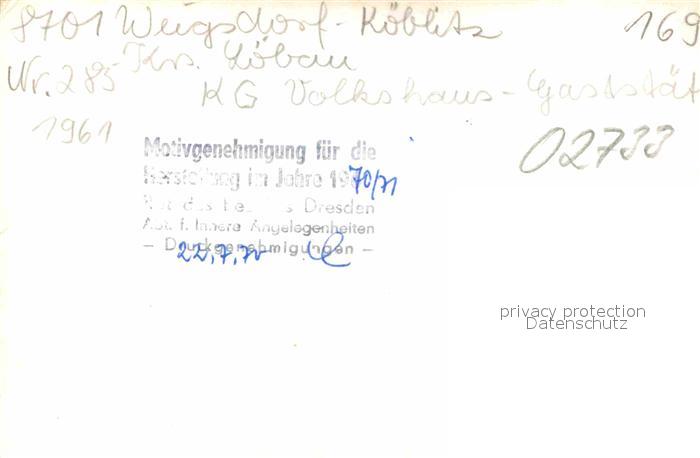 8701 Weigsdorf-Köblitz 169
Nr. 285 Krs. Löbau
KG Volkshaus-Gaststät
1961
02733
Motivgenehmigung für die
Herstellung im Jahre 19 70/71
Rat des Bezirkes Dresden
Abt. f. Innere Angelegenheiten
– Druckgenehmigungen –
22.7.70
privacy protection
Datenschutz